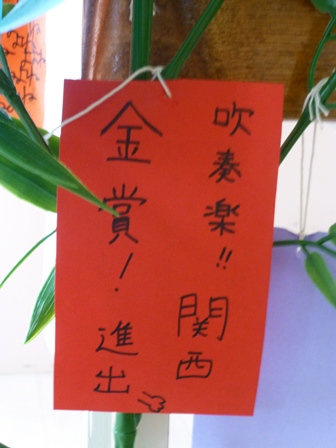 吹奏楽!! 関西
金賞! 進出